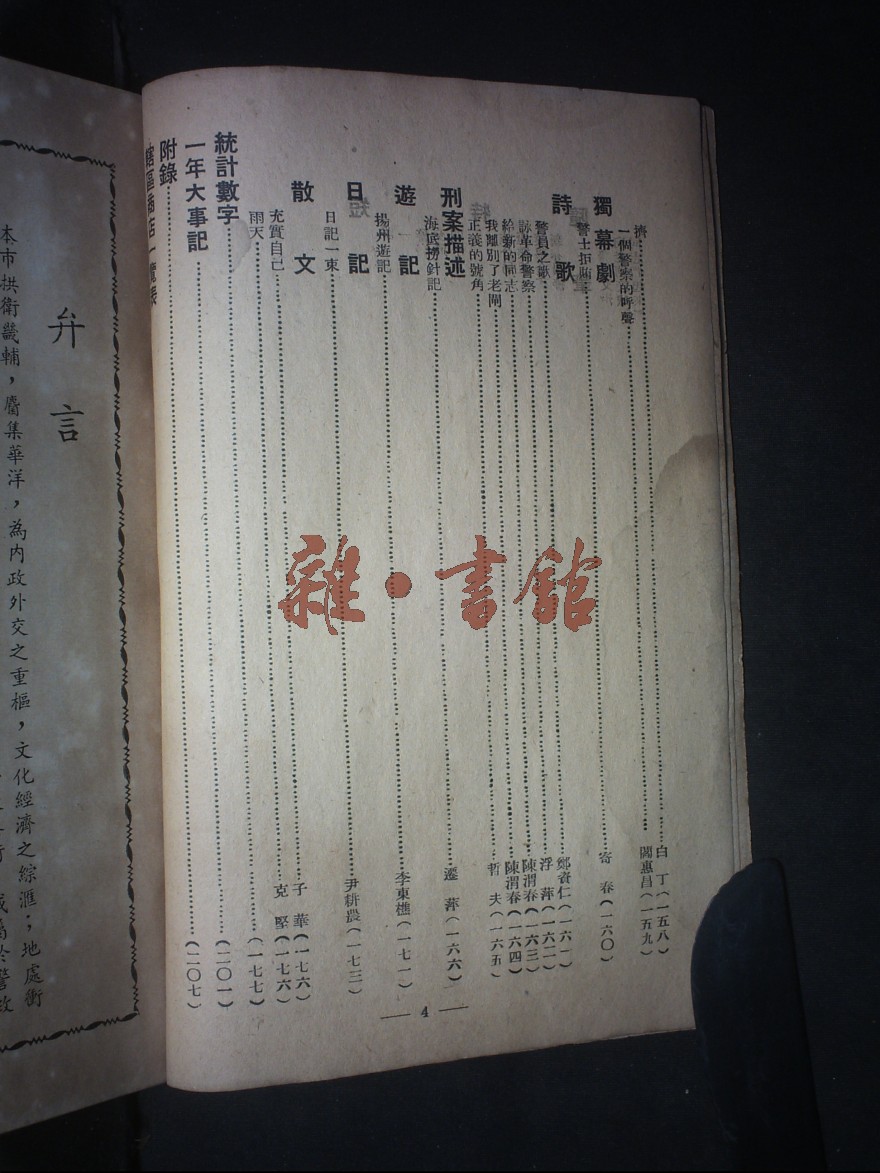 擠……………白 丁(一五八)
一個警察的呼聲……………閻惠昌(一五九)
獨幕劇
警士拒賄……………寄 春(一六〇)
詩 歌
警員之歌……………鄭資仁(一六一)
詠革命警察……………浮 萍(一六二)
給新的同志……………陳渭春(一六三)
我離別了老閘……………陳渭春(一六四)
正義的號角……………哲 夫(一六五)
刑案描述
海底撈針記……………遷 萍(一六六)
遊 記
揚州遊記……………李東樵(一七一)
日 記
日記一束……………尹耕農(一七三)
散 文
充實自己……………子 華(一七六)
雨天……………克 堅(一七六)
統計數字……………(一七七)
一年大事記……………(二〇一)
附錄……………(二〇七)
轄區商店一覽表
— 4 —
弁言
本市拱衛畿輔，麕集華洋，為內政外交之重樞，文化經濟之綜滙；地處衝
雜·書館